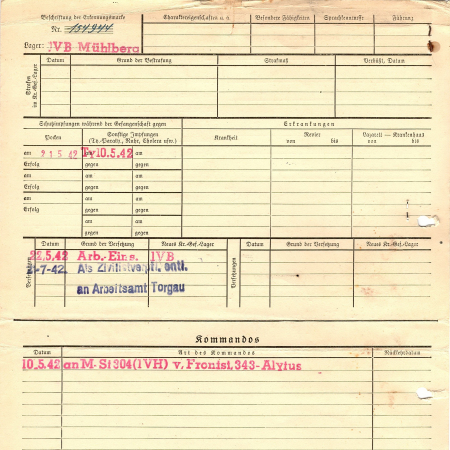 Beschriftung der Erkennungsmarke
Nr. 154944
Lager: IVB Mühlberg
Charaktereigenschaften u. ä.
Besondere Fähigkeiten
Sprachkenntnisse
Führung
Strafen im Kr.-Gef.-Lager
Datum
Grund der Bestrafung
Strafmaß
Verbüßt, Datum
Schutzimpfungen während der Gefangenschaft gegen
Erkrankungen
Pocken
Sonstige Impfungen
(Ty.-Paratyp., Ruhr, Cholera usw.)
Krankheit
Revier
von bis
Lazarett – Krankenhaus
von bis
am 21 5. 42 Ty 10.5.42 am
Erfolg gegen gegen
am am am
Erfolg gegen gegen
am am am
Erfolg gegen gegen
am am am
Erfolg gegen gegen
Versetzungen
Datum
Grund der Versetzung
Neues Kr.-Gef.-Lager
Versetzungen
Datum
Grund der Versetzung
Neues Kr.-Gef.-Lager
22.5.42 Arb.-Eins. IVB
-7-42. Als entl.
an Arbeitsamt Torgau
Kommandos
Datum
Art des Kommandos
Rückkehrdatum
10.5.42 an M.-St 304 (IVH) v. Fronist. 343-Alytus